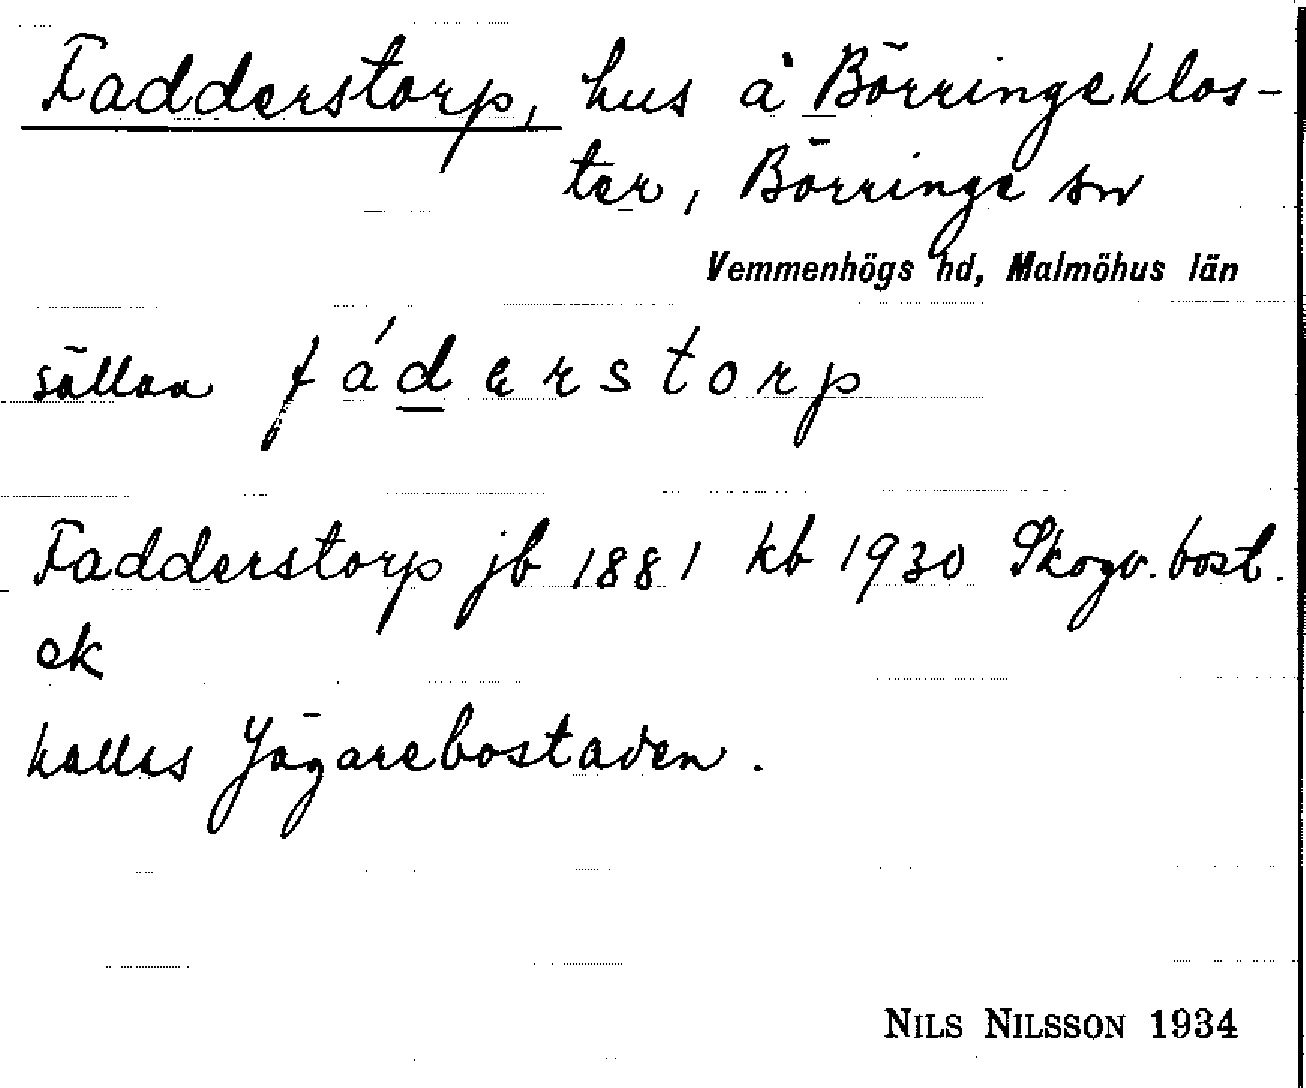 Fadderstorp, hus å Börringeklos-
ter, Börringe sn
Vemmenhögs hd, Malmöhus län
sällan fáderstorp
Fadderstorp jb 1881 kb 1930 Skogv. bost.
ek
kallas Jägarebostaden.
NILS NILSSON 1934